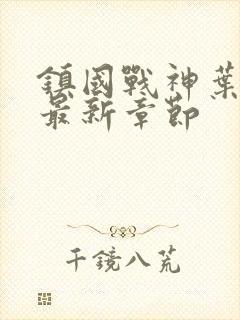 鎮國戰神葉
最新章節
千鏡八荒